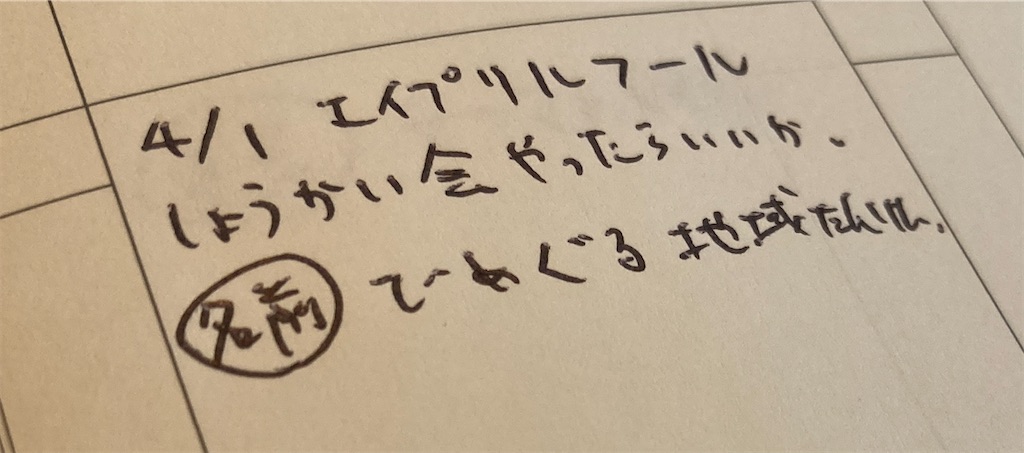 4/1 エイプリルフール
しょうかい会やったらいいか.
名前 でめぐる 地域たんけん.